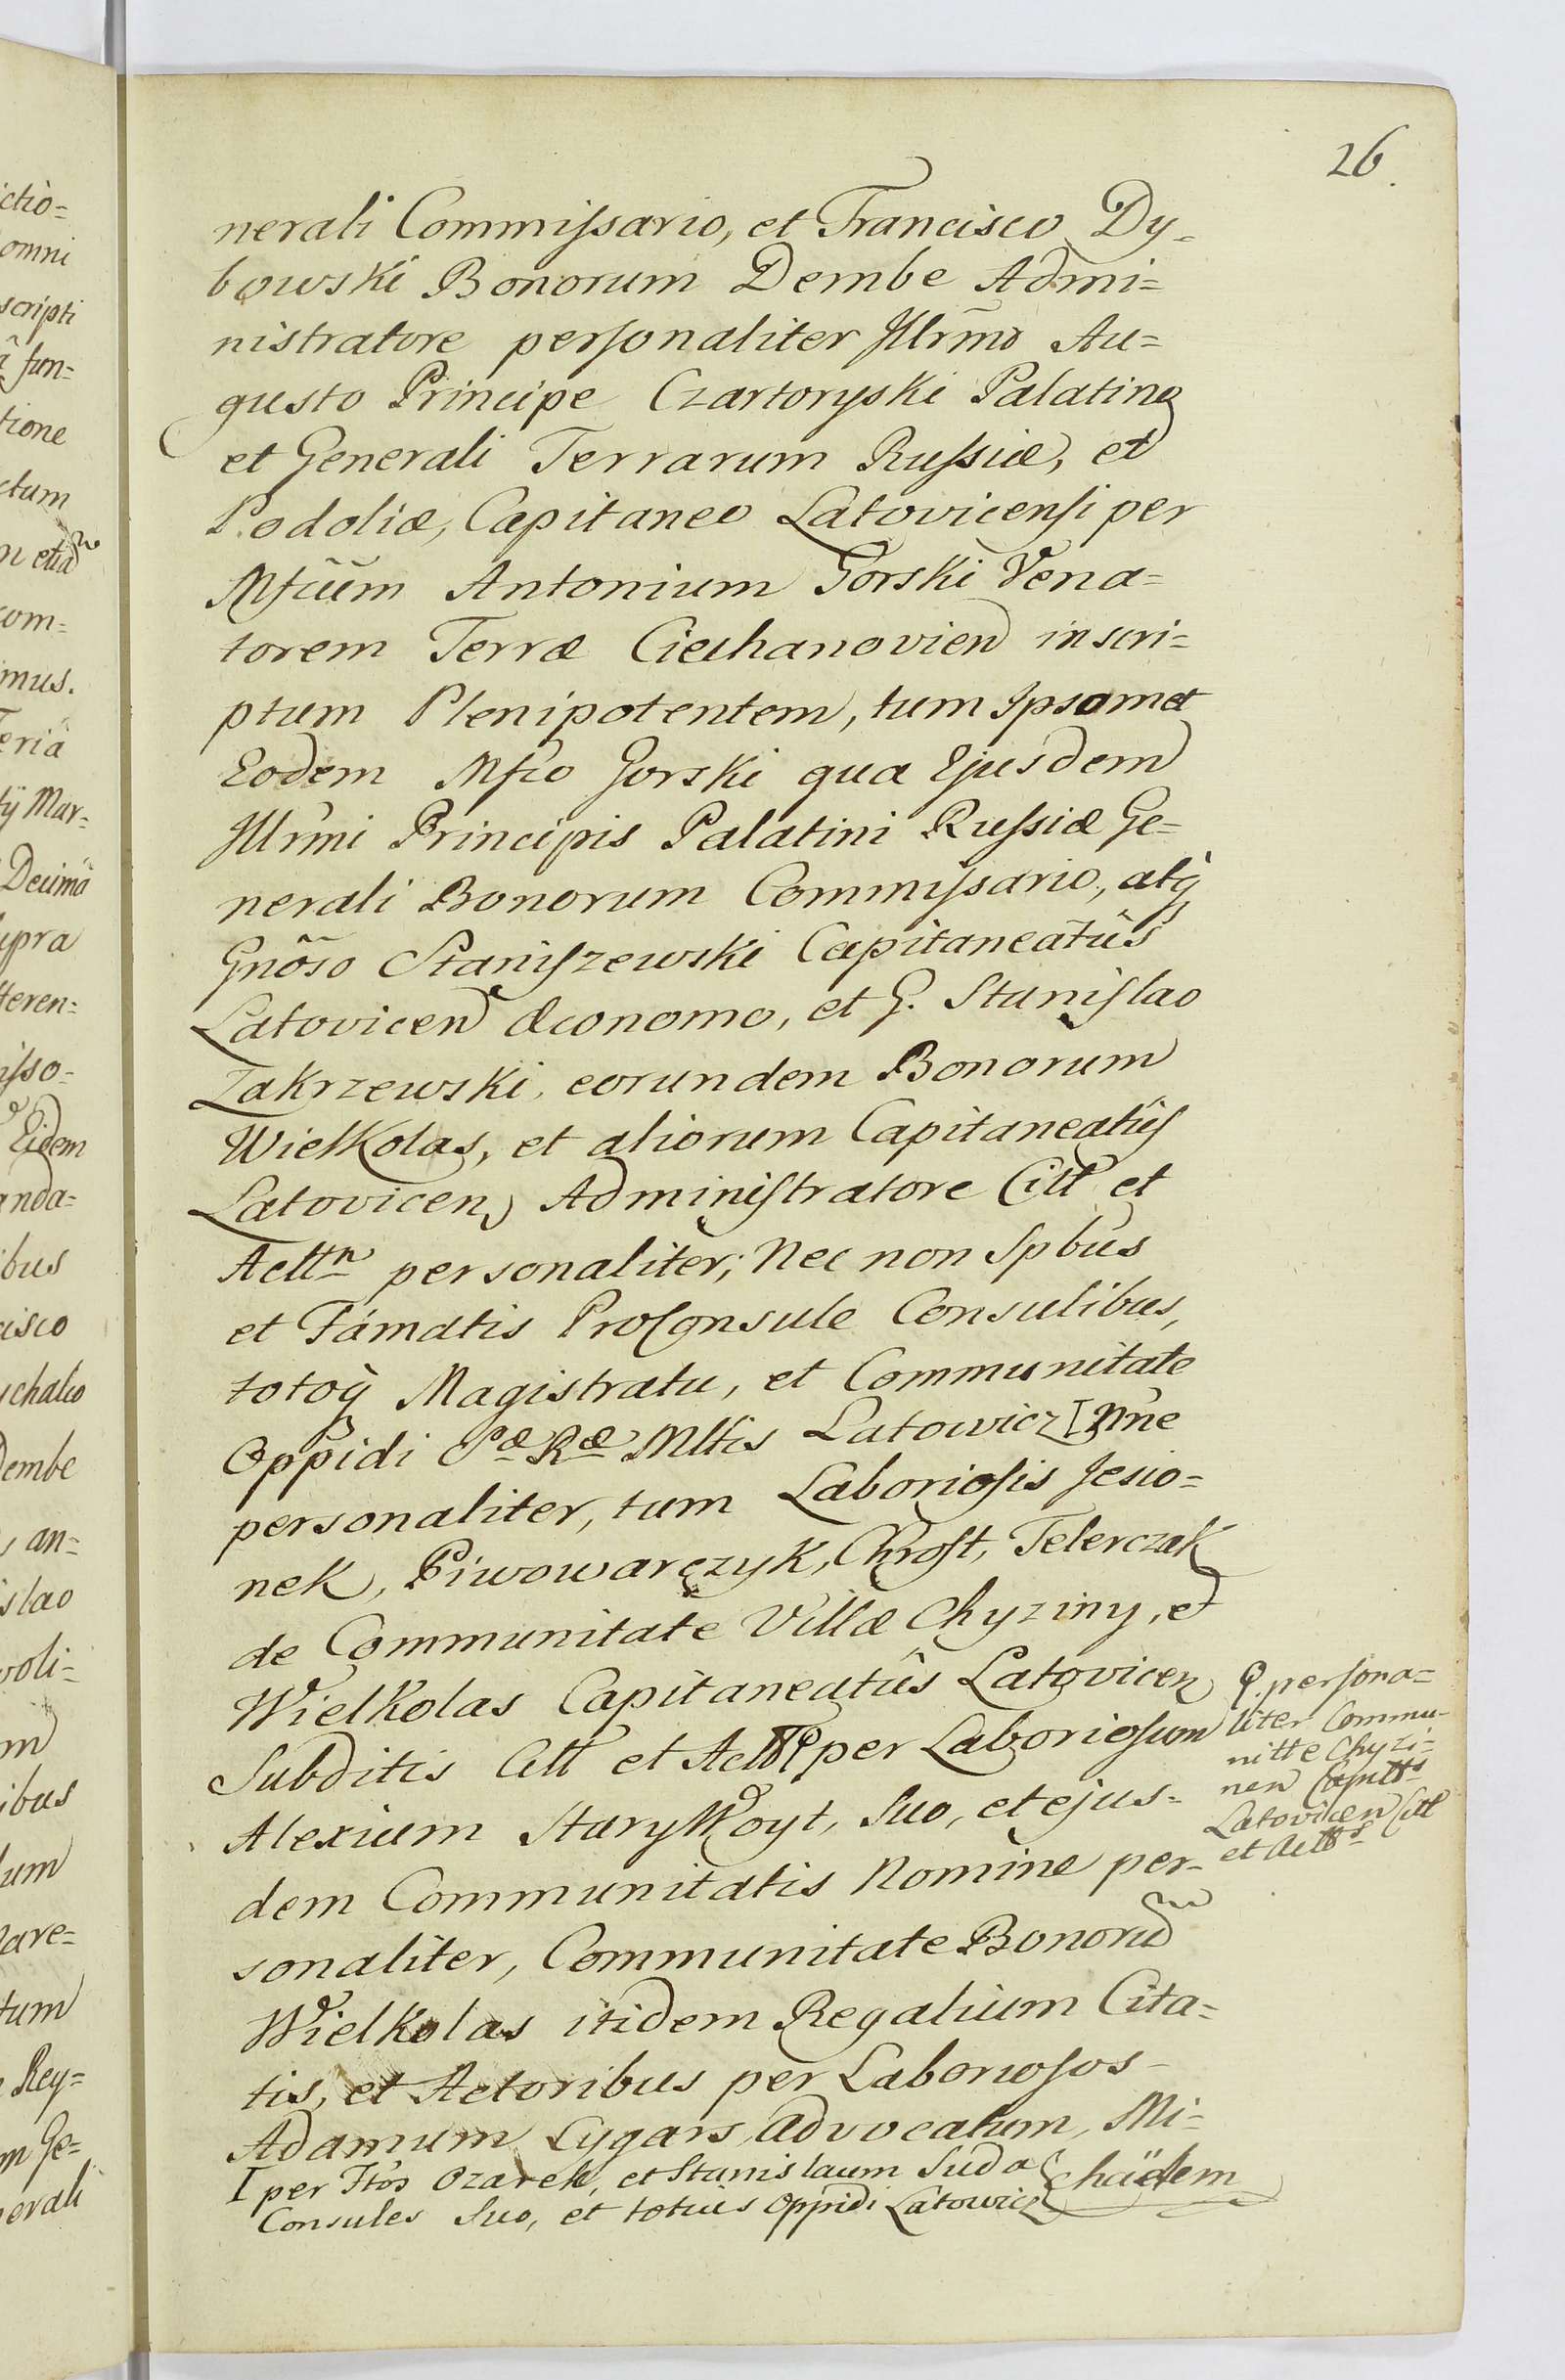 26.
nerali Commiſsario, et Francisco Dy=
bowski Bonorum Dembe Admi=
nistratore perſonaliter Illrm̃o Au=
gusto Principe Czartoryski Palatino
et Generali Terrarum Ruſsiæ, et
Podoliæ, Capitaneo Latovicenſi per
Mfcũm Antonium Gorski Vena=
torem Terræ Ciechanovien inscri=
ptum Plenipotentem, tum Ipsomet
Eodem Mfco Gorski qua Ejusdem
Illrm̃i Principis Palatini Ruſsiæ Ge=
nerali Bonorum Commiſsario, atq̀
Gnõso Staniſzewski Capitaneatûs
Latovicen Œconomo, et G. Staniſlao
Zakrzewski, eorundem Bonorum
Wielkolas, et aliorum Capitaneatûſ
Latovicen Adminiſtratore Citt et
Acttn personaliter; Nec non Spbus
et Famatis ProConsule Consulibus,
totoq̀ Magistratu, et Communitate
Oppidi Sæ Ræ Mttis Latowicz I Nne
personaliter, tum Laborioſis Jesio=
nek, Piwowarczyk, Chroſt, Telerczak
de Communitate Villæ Chyziny, et
Wielkolas Capitaneatûs Latovicen
Subditis Citt et Actt ϙ per Laborioſum
Alexium Stary Woyt, Suo, et ejus=
dem Communitatis Nomine per=
sonaliter, Communitate Bonorũ
Wielkolas itidem Regalium Cita=
tis, et Actoribus per Laborioſos
Adamum Lygars advocatum, Mi=
chaëlem
I per Ftos Ozarek, et Stanislaum Suda
Consules Suo, et totius Oppidi Latowicz
ϙ. perſona=
liter Commu=
nitte Chyzi=
nen Capitts
Latovicen Citt
et Actts
ctio=
omni
scripti
fun=
tione
ctum
etiã
com=
mus.
eriâ
Mar=
Decimâ
upra
teren=
iſso=
Eidem
anda=
ibus
cisco
ychalio
Dembe
an=
islao
voli=
m
ibus
lum
are=
tum
Rey=
m Ge=
nerali